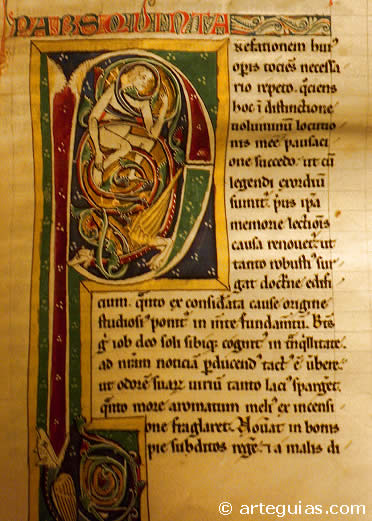 PARS QVINTA
P
refationem hui'
op̄is tociēs necessa
rio repeto. q̄ciens
hoc ī distinctione
voluminum locutio
nis meę pausaci
one succedo. ut cū
legendi exordiū
sumit'. p̄us ip̄a
memorie lectiōis
causa renouet'. ut
tanto robusti' sur
gat doctrine edifi
cium. q̄nto ex cōsidata cause origine
studiosi' ponit' in m̄te fundam̄tū. Bt̄s
g' iob deo soli sibiq; cognit' in tͣnq̄llitate.
ad nr̄am noticiā p̄ducend' tact' ē ūbere.
ut odorē suarꝝ uiriū tanto laci' sparget.
q̄nto more aromatum meli' ex incensi
one fraglaret. Nouat in bonis
pie subditos rege. ⁊ a malis di
© arteguias.com